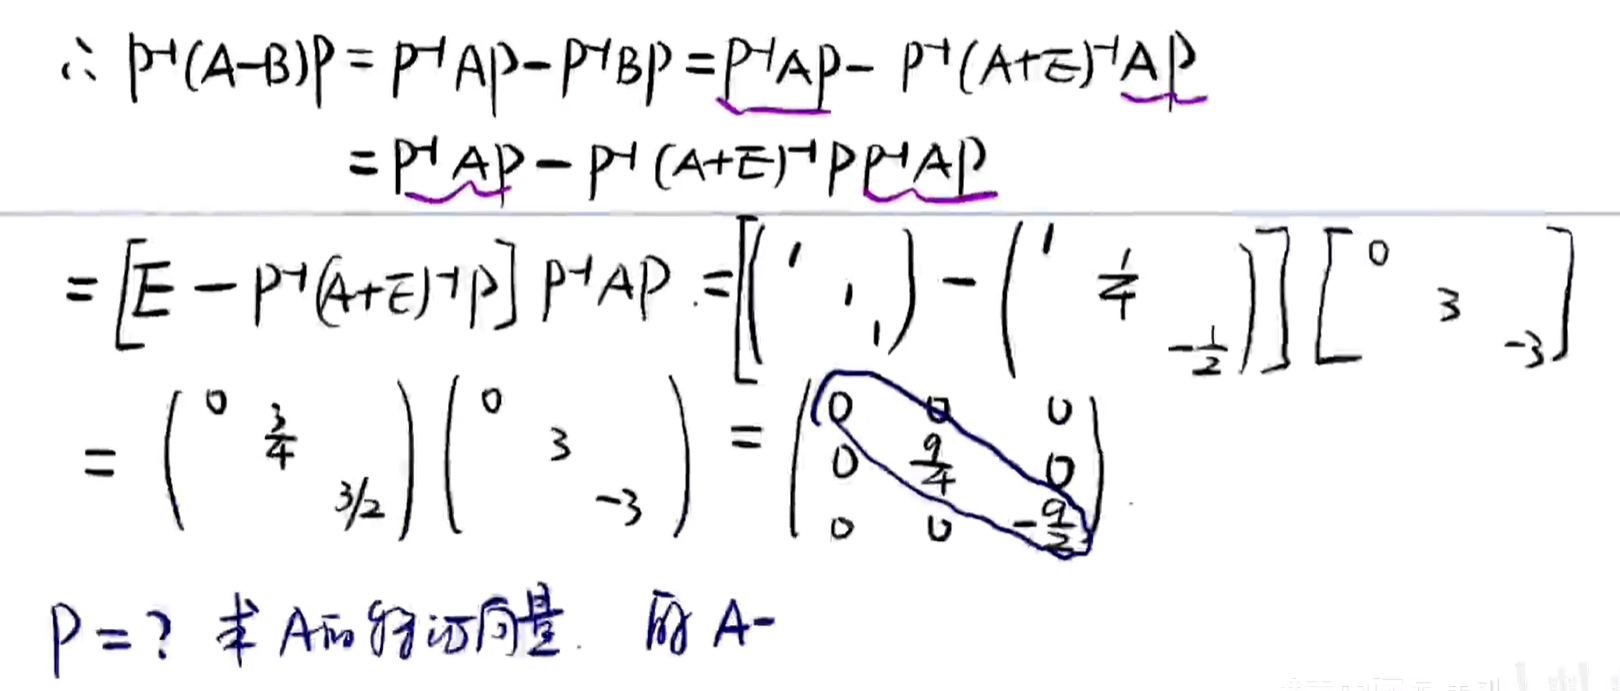 ∴ P⁻¹(A-B)P = P⁻¹AP - P⁻¹BP = P⁻¹AP - P⁻¹(A+E)⁻¹AP
= P⁻¹AP - P⁻¹(A+E)⁻¹PP⁻¹AP
= [E - P⁻¹(A+E)⁻¹P] P⁻¹AP = [(1 1 1) - (1 1/4 -1/2)] [0 3 -3]
= (0 3/4 3/2) (0 3 -3) = (0 0 0
0 9/4 0
0 0 -9/2)
P = ? 求A的特征向量. 的 A-